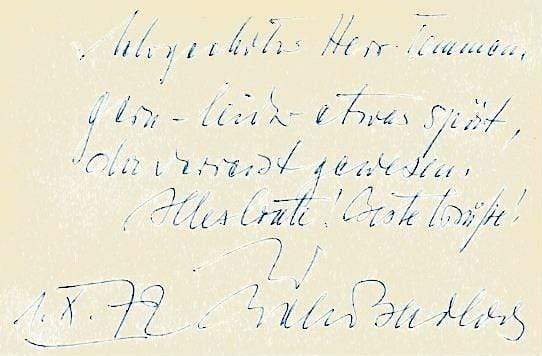 Sehr geehrter Herr Tammen,
gern – leider etwas spät,
da verreist gewesen.
Alles Gute! Beste Grüße!
Ihr
1. X. 72